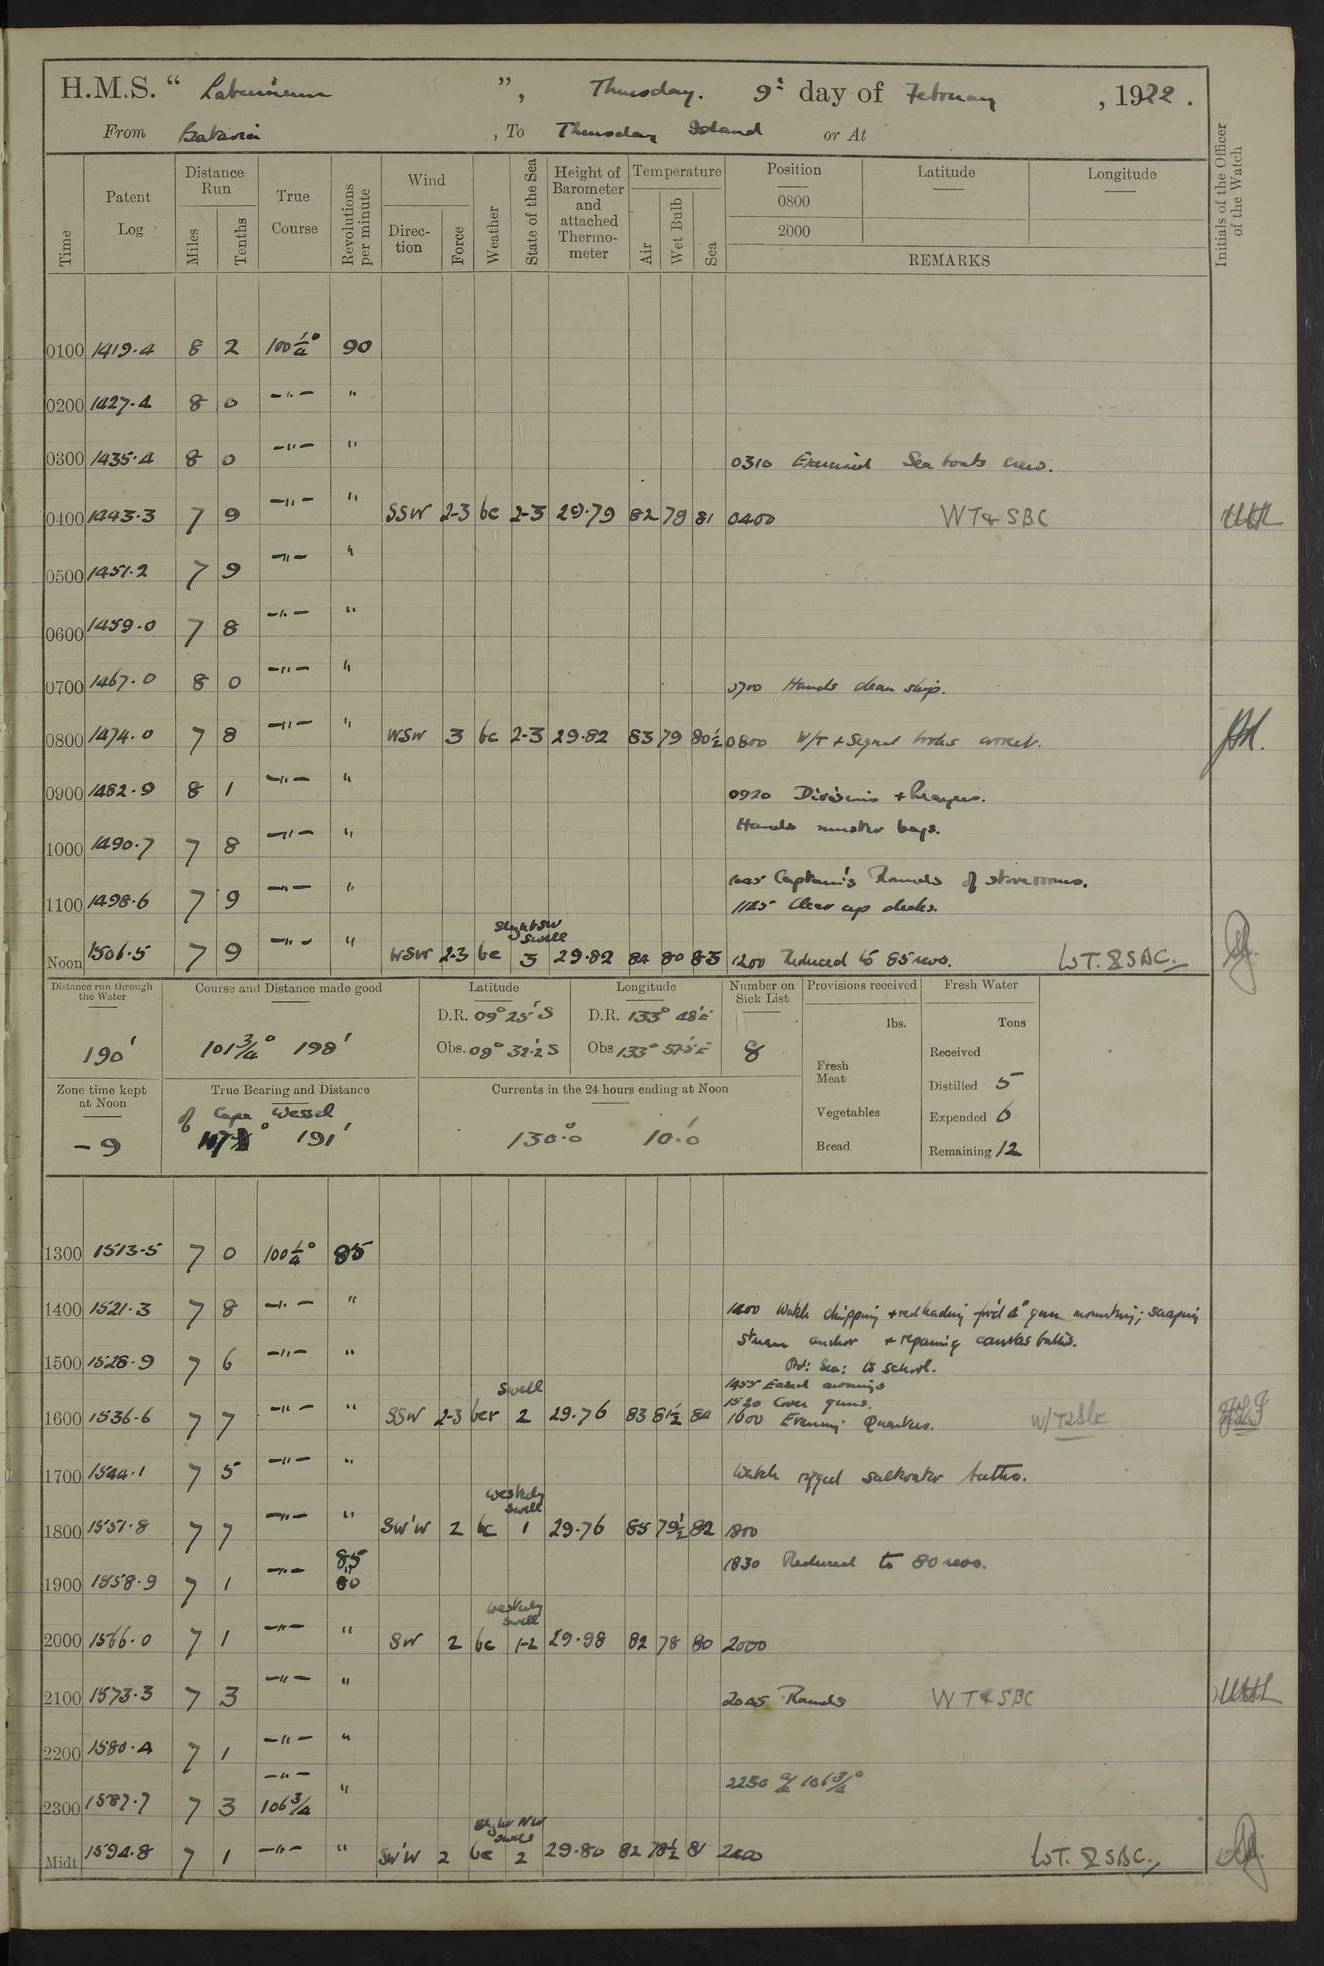 H.M.S. “ Laburnum ”, Thursday. 9th day of February , 1922 .
From Batavia , To Thursday Island or At
Time
Patent Log
Distance Run
Miles
Tenths
True Course
Revolutions per minute
Wind
Direction
Force
Weather
State of the Sea
Height of Barometer and attached Thermometer
Temperature
Air
Wet Bulb
Sea
Position
0800
2000
Latitude
Longitude
REMARKS
Initials of the Officer of the Watch
0100 1419.4 8 2 100¼° 90
0200 1427.4 8 0 –"– "
0300 1435.4 8 0 –"– " 0310 Examined Sea boats crew.
0400 1443.3 7 9 –"– " SSW 2-3 bc 2-3 29.79 82 79 81 0400 WT & SBC
0500 1451.2 7 9 –"– "
0600 1459.0 7 8 –"– "
0700 1467.0 8 0 –"– " 0700 Hands clean ship.
0800 1474.0 7 8 –"– " WSW 3 bc 2-3 29.82 83 79 80½ 0800 W/T + Signal books correct.
0900 1482.9 8 1 –"– " 0920 Divisions + Prayers.
Hands muster bags.
1000 1490.7 7 8 –"– "
1045 Captain's Rounds of storerooms.
1100 1498.6 7 9 –"– " 1145 Clear up decks.
Slight SW Swell
Noon 1506.5 7 9 –"– " WSW 2-3 bc 3 29.82 84 80 83 1200 Reduced to 85 revs. WT. & SBC.
Distance run through the Water
190'
Course and Distance made good
101¾° 198'
Latitude
D.R. 09° 25' S
Obs. 09° 32'.2 S
Longitude
D.R. 133° 48' E
Obs 133° 57'.5 E
Number on Sick List
8
Provisions received
lbs.
Fresh Meat
Vegetables
Bread
Fresh Water
Tons
Received
Distilled 5
Expended 6
Remaining 12
Zone time kept at Noon
– 9
True Bearing and Distance
of Cape Wessel
191'
Currents in the 24 hours ending at Noon
130°.0 10'.0
1300 1513.5 7 0 100¼° 85
1400 1521.3 7 8 –"– " 1400 Watch chipping + redleading for'd 4" gun mounting; scraping
stream anchor + repairing canvas baths.
1500 1528.9 7 6 –"– " Ord: Sea: to school.
1455 Eased awnings
1520 Cover guns.
swell
1600 1536.6 7 7 –"– " SSW 2-3 bcr 2 29.76 83 81½ 84 1600 Evening Quarters. W/T & Sbc
1700 1544.1 7 5 –"– " Watch rigged saltwater baths.
Westerly swell
1800 1551.8 7 7 –"– " SW'W 2 bc 1 29.76 85 79½ 82 1800
1830 Reduced to 80 revs.
1900 1558.9 7 1 –"– 85 80
Westerly swell
2000 1566.0 7 1 –"– " SW 2 bc 1-2 29.98 82 78 80 2000
2100 1573.3 7 3 –"– " 2045 Rounds WT & SBC
2200 1580.4 7 1 –"– "
–"– 2230 a/c 106¾°
2300 1587.7 7 3 106¾ "
Slight NW swell
Midt 1594.8 7 1 –"– " SW'W 2 bc 2 29.80 82 78½ 81 2400 WT. & SBC.